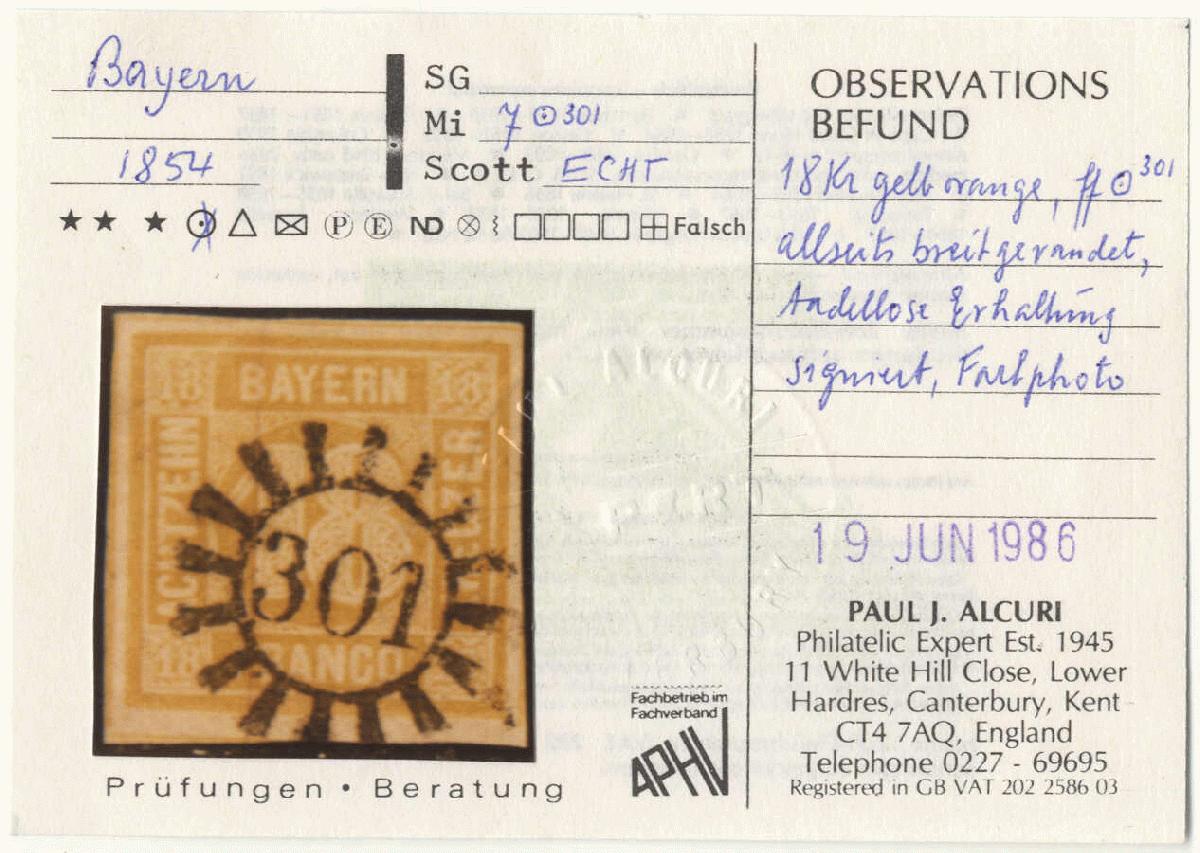 Bayern
1854
SG
Mi 7 ⊙ 301
Scott ECHT
★★ ★ ⊙ △ ✉ Ⓟ Ⓔ ND ⊗ ⌇ □□□□ ⊞ Falsch
BAYERN
18 18
ACHTZEHN
18
301
Prüfungen • Beratung
Fachbetrieb im
Fachverband
APHV
OBSERVATIONS
BEFUND
18 Kr gelborange, ff ⊙ 301
allseits breitgerandet,
tadellose Erhaltung
signiert, Farbphoto
19 JUN 1986
PAUL J. ALCURI
Philatelic Expert Est. 1945
11 White Hill Close, Lower
Hardres, Canterbury, Kent
CT4 7AQ, England
Telephone 0227 - 69695
Registered in GB VAT 202 2586 03
ALCURI